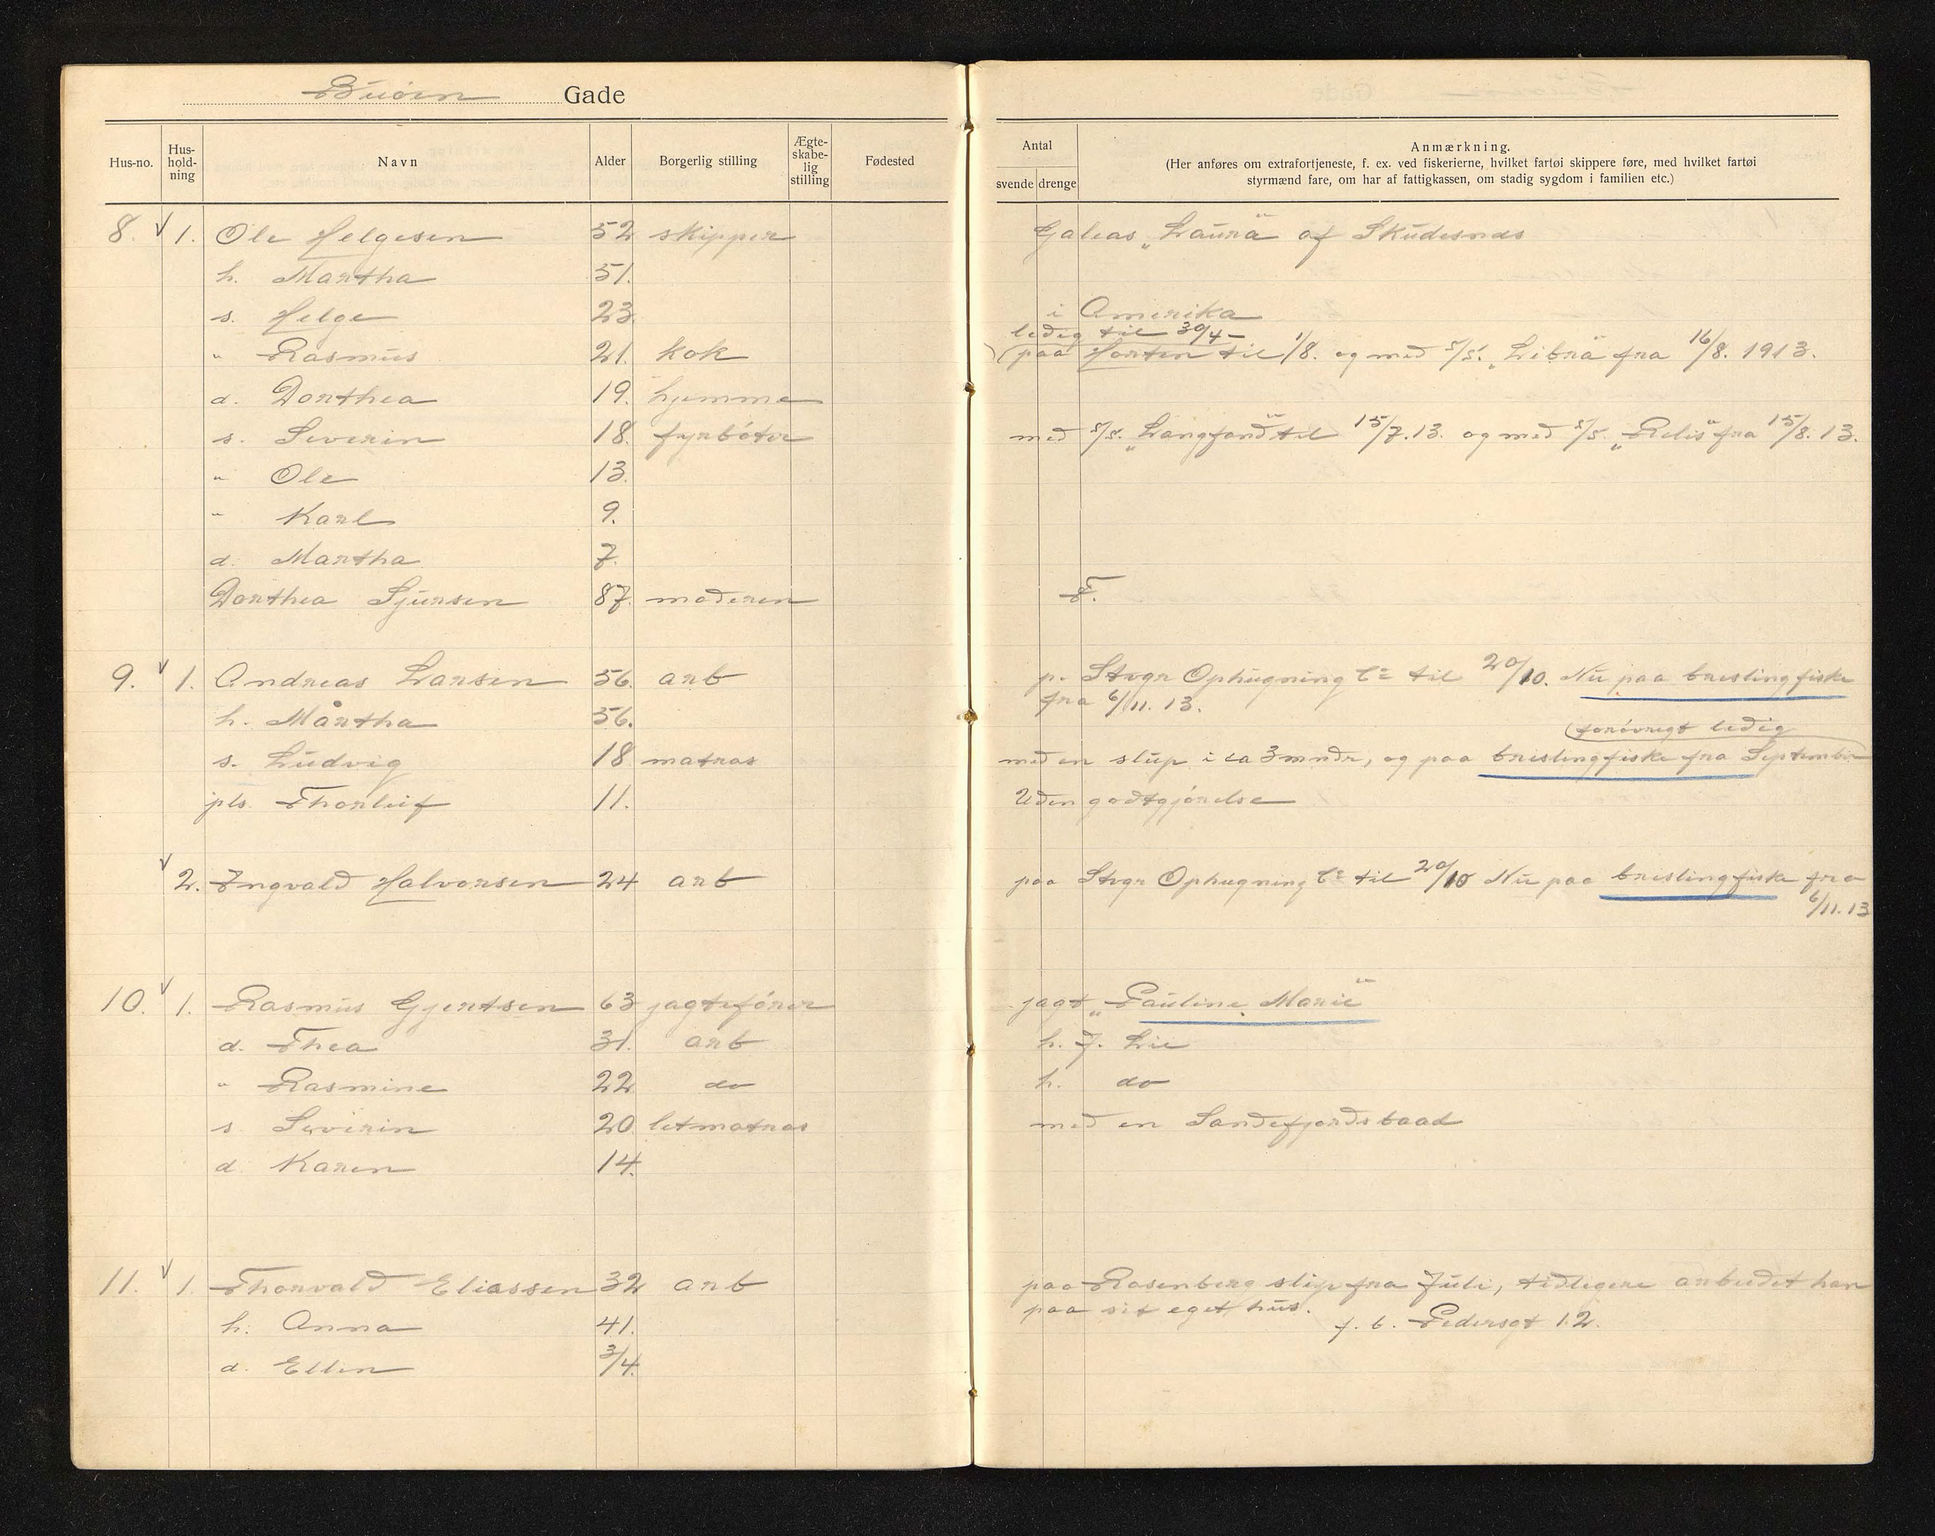 Buöen Gade
Hus-no. Hus-hold-ning Navn Alder Borgerlig stilling Ægte-skabe-lig stilling Fødested Antal svende drenge Anmærkning.
(Her anføres om extrafortjeneste, f. ex. ved fiskerierne, hvilket fartøi skippere føre, med hvilket fartøi
styrmænd fare, om har af fattigkassen, om stadig sygdom i familien etc.)
8. √ 1. Ole Helgesen 52 skipper Galeas „Laura“ af Skudesnæs
h. Martha 51.
s. Helge 23. i Amerika
ledig til 30/4 -
" Rasmus 21. kok (paa Horten til 1/8. og med s/s. „Libra“ fra 16/8. 1913.
d. Dorthea 19. hjemme
s. Severin 18. fyrböter med s/s. „Langfond“ til 15/7.13. og med s/s. „Relis“ fra 15/8. 13.
" Ole 13.
" Karl 9.
d. Martha 7.
Dorthea Sjursen 87. moderen F.
9. √ 1. Andreas Larsen 56. arb p. Stvgr Ophugning Co til 20/10. Nu paa brislingfiske
fra 6/11. 13.
h. Mårtha 56.
(forövrigt ledig
s. Ludvig 18 matros med en slup i ca 3 mndr, og paa brislingfiske fra September
pls. Thorleif 11. Uden godtgjörelse
√ 2. Ingvald Halvorsen 24 arb paa Stvgr Ophugning Co til 20/10 Nu paa brislingfiske fra
6/11. 13
10. √ 1. Rasmus Gjertsen 63 jagteförer jagt „Pauline Marie“
d. Thea 31. arb h. J. Lie
" Rasmine 22 do h. do
s Severin 20. letmatros med en Sandefjordsbaad
d. Karen 14.
11. √ 1. Thorvald Eliassen 32 arb paa Rosenberg slip fra Juli, tidligere arbeidet han
paa sit eget hus. f. b. Pedersgt 12.
h. Anna 41.
d. Ellen 3/4.